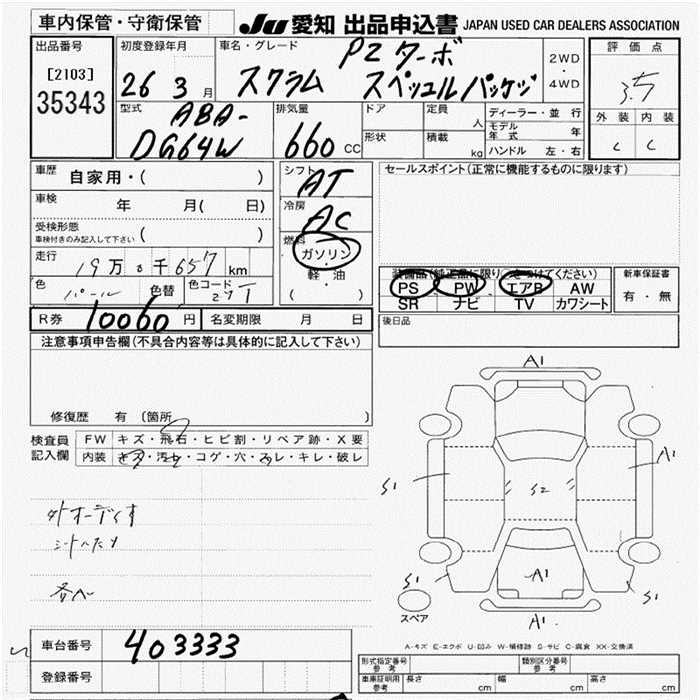 車内保管・守衛保管
JU 愛知 出品申込書 JAPAN USED CAR DEALERS ASSOCIATION
出品番号
[2103]
35343
初度登録年月
26 3 月
車名・グレード
PZターボ
スクラム スペシャルパッケージ
2WD
・
4WD
評価点
3.5
外装 内装
C C
型式
ABA-
DG64W
排気量
660 CC
ドア
形状
定員
人
積載
kg
ディーラー・並行
モデル年式 年
ハンドル 左・右
車歴
自家用・( )
車検
年 月( 日)
受検形態
車検付きのみ記入して下さい ( )
走行
19万0千657 km
色
パール 色替
色コード
Z7T
シフト
AT
冷房
AC
燃料
ガソリン
・
軽油
・
( )
セールスポイント(正常に機能するものに限ります)
装備品(純正品に限り○をつけてください)
PS PW エアB AW
SR ナビ TV カワシート
新車保証書
有・無
R券 10060 円
名変期限 月 日
後日品
注意事項申告欄(不具合内容等は具体的に記入して下さい)
修復歴 有 〔箇所
検査員
記入欄
FW キズ・飛石・ヒビ割・リペア跡・X要
内装 キズ・汚レ・コゲ・穴・スレ・キレ・破レ
外オーディオ
シートヘタリ
A1
A1
S1
S2
S1
A1
S1
A1
スペア
A-キズ E-エクボ U-凹み W-補修跡 S-サビ C-腐食 XX-交換済
車台番号 403333
登録番号
型式指定番号
参考
類別区分番号
参考
車庫証明用
参考
長さ cm
幅 cm
高さ cm